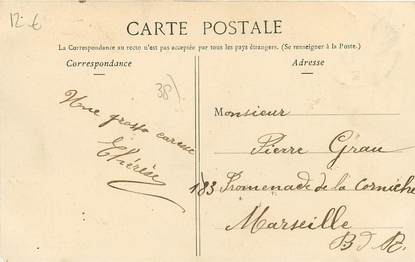 12-6
CARTE POSTALE
La Correspondance au recto n'est pas acceptée par tous les pays étrangers. (Se renseigner à la Poste.)
Correspondance
Adresse
38
Une grosse caresse
Thérèse
Monsieur
Pierre Grau
183 Promenade de la Corniche
Marseille
B d R.